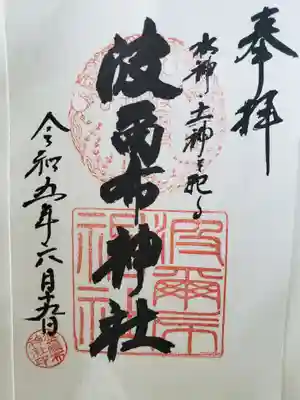 奉拝
水神・土神を祀る
波爾布神社
令和五年六月十九日
波爾布
神社